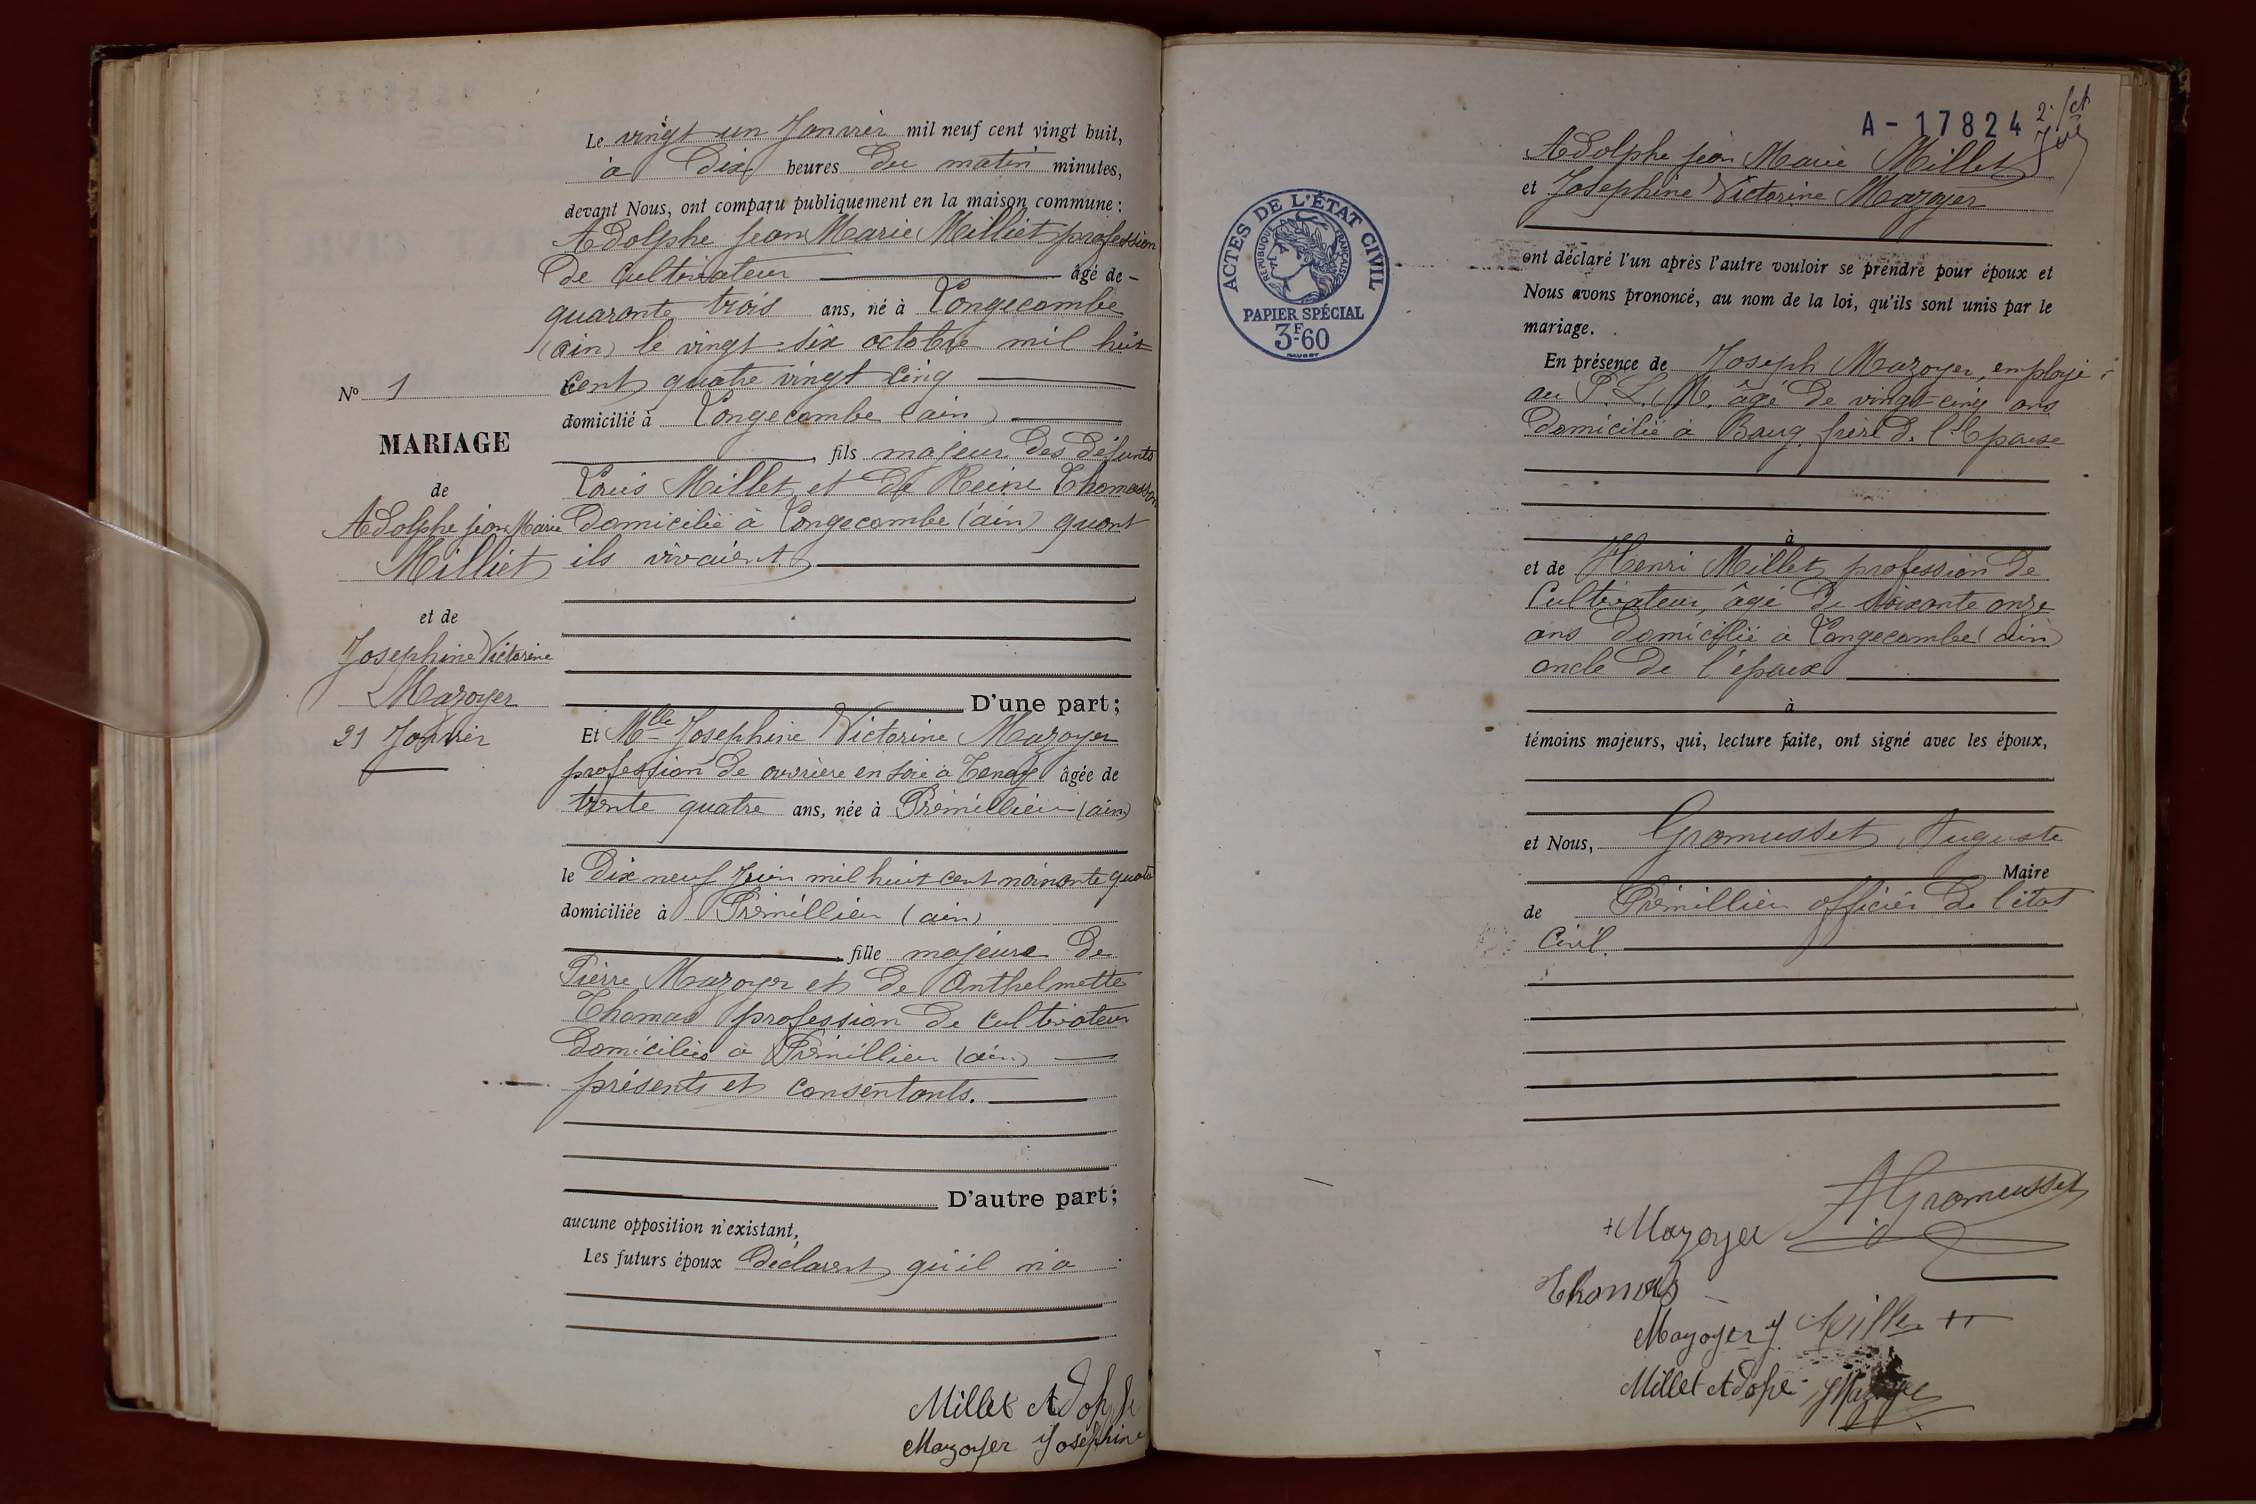 Le vingt un Janvier mil neuf cent vingt huit,
à Dix heures du matin minutes,
devant Nous, ont comparu publiquement en la maison commune :
Adolphe Jean Marie Milliet profession
De Cultivateur âgé de
quarante trois ans, né à Longecombe
(ain) le vingt six octobre mil huit
cent quatre vingt cinq
domicilié à Longecombe (ain)
fils majeur des défunts
Louis Millet et de Reine Thomasson
Domicilié à Longecombe (ain) quant
ils vivaient
D'une part ;
Et Mlle Josephine Victorine Mazoyer
profession de ouvrière en soie à Tenay âgée de
trente quatre ans, née à Prémillieu (ain)
le Dix neuf Juin mil huit cent noinante quatre
domiciliée à Prémillieu (ain)
fille majeure De
Pierre Mazoyer et De Anthelmette
Thomas profession de cultivateur
Domiciliés à Prémillieu (ain)
présents et consentants.
D'autre part ;
aucune opposition n'existant,
Les futurs époux Déclarent qu'il n'a
Millet Adophe
Mazoyer Josephine
N° 1
MARIAGE
de
Adolphe jean Marie
Milliet
et de
Josephine Victorine
Mazoyer
21 Janvier
A - 17824
ACTES DE L'ÉTAT CIVIL
RÉPUBLIQUE FRANÇAISE
PAPIER SPÉCIAL
3F-60
Adolphe jean Marie Millet
et Josephine Victorine Mazoyer
ont déclaré l'un après l'autre vouloir se prendre pour époux et
Nous avons prononcé, au nom de la loi, qu'ils sont unis par le
mariage.
En présence de Joseph Mazoyer, employé
au P. L. M. âgé de vingt cinq ans
Domicilié à Bourg frère de l'Epouse
à
et de Henri Millet profession De
Cultivateur, âgé de soixante onze
ans Domicilié à Longecombe (ain)
oncle De l'époux
à
témoins majeurs, qui, lecture faite, ont signé avec les époux,
et Nous, Gromusset Auguste
Maire
de Prémillieu officier De l'état
Civil.
A Gromusset
+ Mazoyer
Thomas
Mazoyer J
Millet Adophe